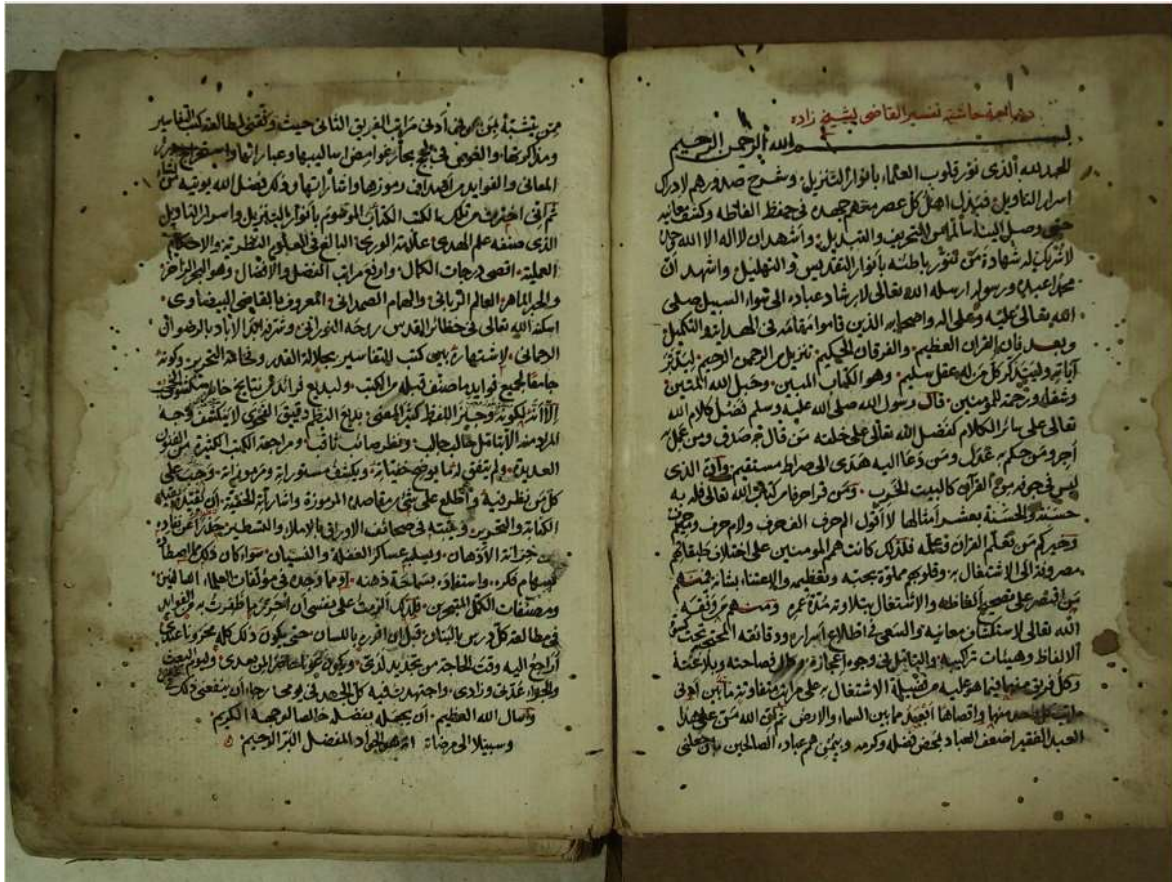 حاشية تفسير القاضى لشيخ زاده
بسم الله الرحمن الرحيم
الحمد لله الذى نور قلوب العلماء بأنوار التنزيل وشرح صدورهم لادراك
اسرار التاويل فبذل اهل كل عصر منهم جهده فى حفظ الفاظه وكشف معانيه
حتى وصل الينا سالما من التحريف والتبديل واشهد ان لا اله الا الله وحده
لا شريك له شهادة من تنور باطنه بأنوار التقديس والتهليل واشهد أن
محمدا عبده ورسوله ارسله الله تعالى لارشاد عباده الى سواء السبيل صلى
الله تعالى عليه وعلى اله واصحابه الذين قاموا مقامه فى الهداية والتكميل
وبعد فان القران العظيم والفرقان الحكيم تنزيل من الرحمن الرحيم ليتدبر
آياته وليتذكر كل من له عقل سليم وهو الكتاب المبين وحبل الله المتين
وشفاء ورحمة للمؤمنين قال رسول الله صلى الله عليه وسلم فضل كلام الله
تعالى على سائر الكلام كفضل الله تعالى على خلقه من قال به صدق ومن عمل به
أجر ومن حكم به عدل ومن دعا اليه هدى الى صراط مستقيم وان الذى
ليس فى جوفه من القران كالبيت الخرب ومن قرأ حرفا من كتاب الله تعالى فله به
حسنة والحسنة بعشر أمثالها لا أقول الم حرف الف حرف ولام حرف وميم حرف
وخيركم من تعلم القران وعلمه فلذلك كانت همم المومنين على اختلاف طبقاتهم
مصروفة الى الاشتغال به وقلوبهم مملوة بحبه وتعظيمه والاعتناء بشانه فمنهم
من اقتصر على تصحيح ألفاظه والاشتغال بتلاوته مدة عمره ومنهم من وفقه
الله تعالى لاستكشاف معانيه والسعى فى اطلاع أسراره ودقائقه المحتجبة تحت
الالفاظ وهيئات تراكيبه والتامل فى وجوه اعجازه وكمال فصاحته وبلاغته
وكل فريق منهما فيما هو عليه من فضيلة الاشتغال به على مراتب متفاوتة ما بين أدنى
مراتب كل منها واقصاها ابعد ما بين السماء والارض ثم ان الله من على هذا
العبد الفقير اضعف العباد بمحض فضله وكرمه وبيمن همم عباده الصالحين بان جعلنى
ممن يتشبه بمن فى أدنى مراتب الفريق الثانى حيث وفقنى لمطالعة كتب التفاسير
ومذاكرتها والغوص فى لجج بحار غوامض اساليبها وعباراتها واستخراج درر
المعانى والفوايد من اصداف رموزها واشاراتها وذلك فضل الله يوتيه من يشاء
ثم انى اخترت من تلك الكتب الكتاب الموسوم بأنوار التنزيل واسرار التاويل
الذى صنفه علم الهدى علامة الورى البالغ فى العلوم النظرية والاحكام
العملية اقصى درجات الكمال وارفع مراتب الفضل والافضال وهو البحر الزاخر
والحبر الماهر العالم الربانى والهمام الصمدانى المعروف بالقاضى البيضاوى
اسكنه الله تعالى فى حظائر القدس روحه النورانى ونور مرقده ابد الاباد بالرضوان
الرحمانى لاشتهاره بين كتب التفاسير بجلالة القدر وفخامة التحرير وكونه
جامعا لجميع فوايد ما صنف قبله من الكتب ولبديع فرائد من نتايج خاطره
الا أنه لكونه وجيز اللفظ كثير المعنى بديع النظم دقيق الفحوى لا ينكشف وجه
المراد منه الا بتامل خال ونظر صائب ثاقب ومراجعة الكتب الكثيرة من الفنون
العديدة ولم يتفق له ما يوضح خفياته ويكشف مستوراته ومرموزاته وجب على
كل من نظر فيه واطلع على شئ من مقاصده المرموزة واشاراته الخفية أن يقيده بقيد
الكتابة والتحرير ويثبته فى صحائف الاوراق بالاملاء والتسطير حذرا عن نفاده
من خزانة الأذهان وسلب عساكر الغفلة والنسيان سواء كان ذلك مما
بسهام فكره واستفاده بسماحة ذهنه أو مما وجده فى مؤلفات العلماء السالفين
ومصنفات الكمل المتبحرين فلذلك الزمت على نفسى أن احرر ما ظفرت به من الفوايد
فى مطالعة كل درس بالبنان قبل أن اقرره باللسان حتى يكون ذلك كله محررا عندى
أراجع اليه وقت الحاجة من تجديد لدى ويكون تذكرة لمن بعدى وليوم البعث
والجزاء عدتى وزادى واجتهدت فيه كل الجهد فى يومى رجاء أن ينفعنى ذلك
واسال الله العظيم أن يجعله بفضله خالصا لوجهه الكريم
وسبيلا الى مرضاته انه هو الجواد المفضل البر الرحيم